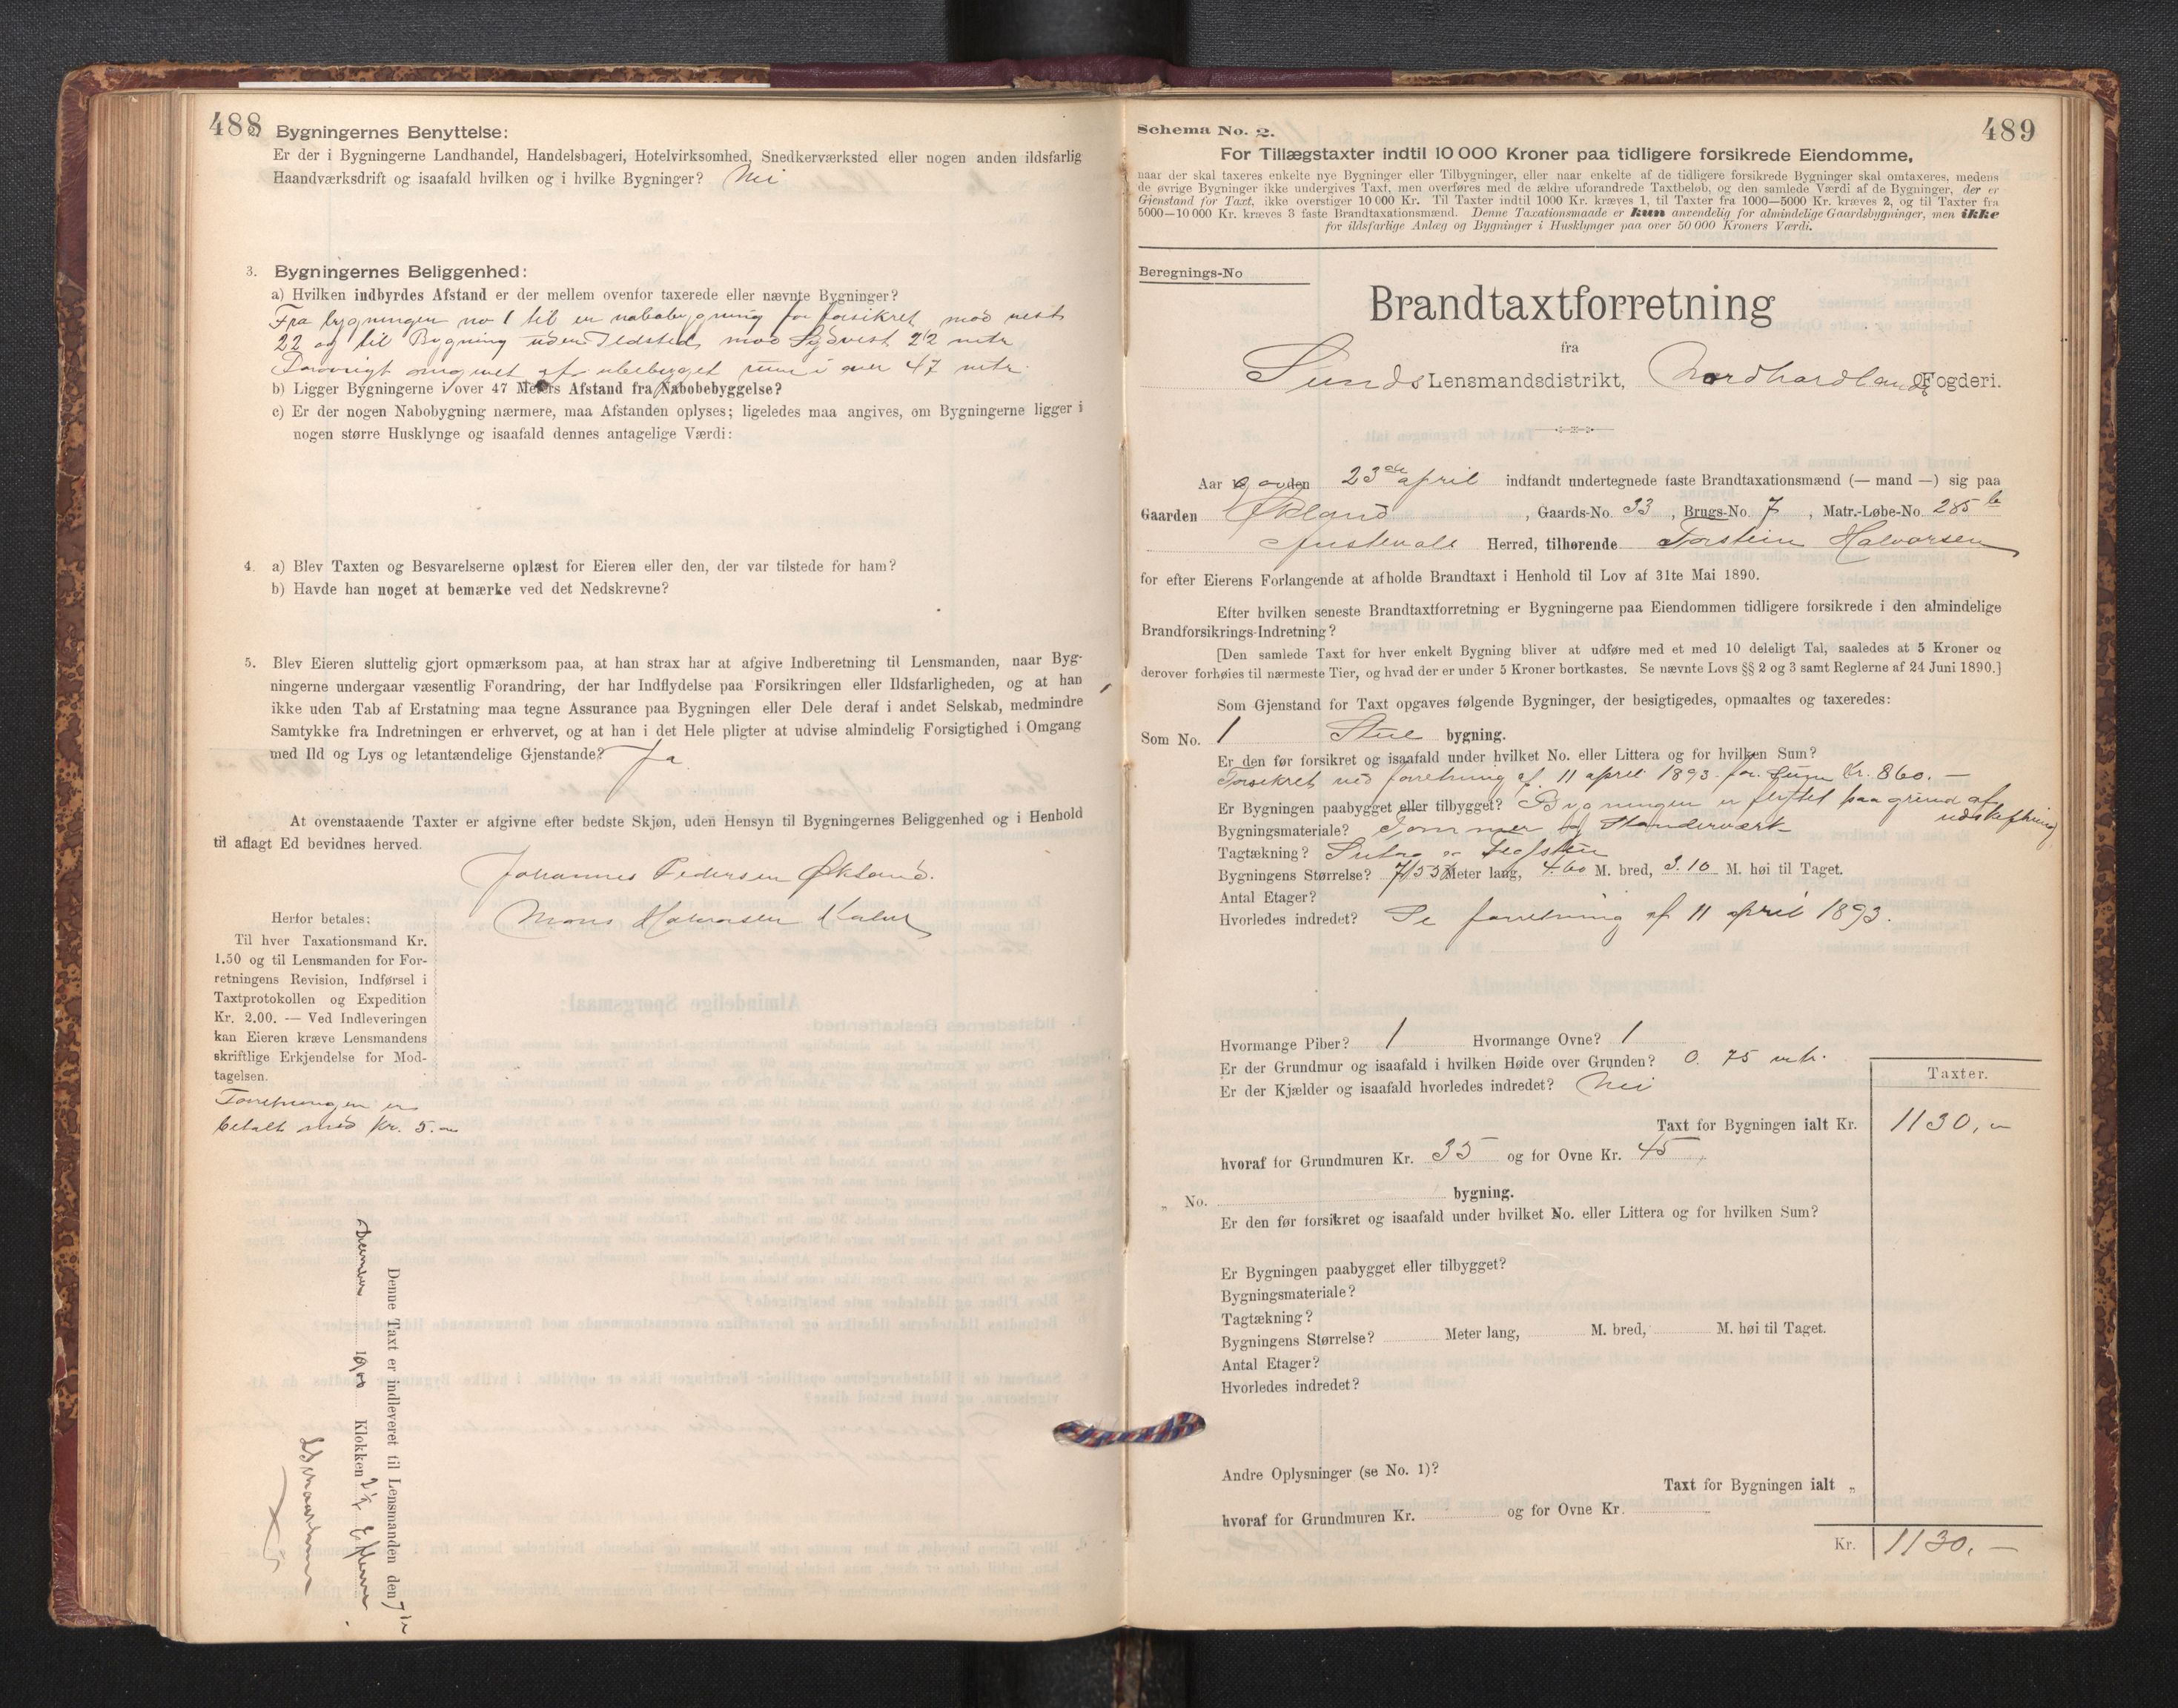 488
2. Bygningernes Benyttelse:
Er der i Bygningerne Landhandel, Handelsbageri, Hotelvirksomhed, Snedkerværksted eller nogen anden ildsfarlig
Haandværksdrift og isaafald hvilken og i hvilke Bygninger? Nei
3. Bygningernes Beliggenhed:
a) Hvilken indbyrdes Afstand er der mellem ovenfor taxerede eller nævnte Bygninger?
Fra bygningen no 1 til en nabobygning for forsikret mod vest
22 og til Bygning uden Ildsted mod Sydvest 22 mtr
Forøvrigt omgivet af ubebygget rum i over 47 mtr.
b) Ligger Bygningerne i over 47 Meters Afstand fra Nabobebyggelse?
c) Er der nogen Nabobygning nærmere, maa Afstanden oplyses; ligeledes maa angives, om Bygningerne ligger i
nogen større Husklynge og isaafald dennes antagelige Værdi:
4. a) Blev Taxten og Besvarelserne oplæst for Eieren eller den, der var tilstede for ham?
b) Havde han noget at bemærke ved det Nedskrevne?
5. Blev Eieren sluttelig gjort opmærksom paa, at han strax har at afgive Indberetning til Lensmanden, naar Byg-
ningerne undergaar væsentlig Forandring, der har Indflydelse paa Forsikringen eller Ildsfarligheden, og at han
ikke uden Tab af Erstatning maa tegne Assurance paa Bygningen eller Dele deraf i andet Selskab, medmindre
Samtykke fra Indretningen er erhvervet, og at han i det Hele pligter at udvise almindelig Forsigtighed i Omgang
med Ild og Lys og letantændelige Gjenstande? Ja
At ovenstaaende Taxter er afgivne efter bedste Skjøn, uden Hensyn til Bygningernes Beliggenhed og i Henhold
til aflagt Ed bevidnes herved.
Johannes Pedersen Økland.
Mons Halvorsen
Herfor betales:
Til hver Taxationsmand Kr.
1.50 og til Lensmanden for For-
retningens Revision, Indførsel i
Taxtprotokollen og Expedition
Kr. 2.00. — Ved Indleveringen
kan Eieren kræve Lensmandens
skriftlige Erkjendelse for Mod-
tagelsen.
Forretningen er
betalt med Kr. 5.00
Denne Taxt er indleveret til Lensmanden den 7de
December 1900 Klokken 2½ Efterm
489
Schema No. 2.
For Tillægstaxter indtil 10 000 Kroner paa tidligere forsikrede Eiendomme,
naar der skal taxeres enkelte nye Bygninger eller Tilbygninger, eller naar enkelte af de tidligere forsikrede Bygninger skal omtaxeres, medens
de øvrige Bygninger ikke undergives Taxt, men overføres med de ældre uforandrede Taxtbeløb, og den samlede Værdi af de Bygninger, der er
Gjenstand for Taxt, ikke overstiger 10 000 Kr. Til Taxter indtil 1000 Kr. kræves 1, til Taxter fra 1000—5000 Kr. kræves 2, og til Taxter fra
5000—10 000 Kr. kræves 3 faste Brandtaxationsmænd. Denne Taxationsmaade er kun anvendelig for almindelige Gaardsbygninger, men ikke
for ildsfarlige Anlæg og Bygninger i Husklynger paa over 50 000 Kroners Værdi.
Beregnings-No
Brandtaxtforretning
fra
Sunds Lensmandsdistrikt, Nordhordlands Fogderi.
Aar 1900 den 23de april indfandt undertegnede faste Brandtaxationsmænd (— mand —) sig paa
Gaarden Økland, Gaards-No. 33, Brugs-No. 7, Matr.-Løbe-No. 285 b
Austevold Herred, tilhørende Torstein Halvorsen
for efter Eierens Forlangende at afholde Brandtaxt i Henhold til Lov af 31te Mai 1890.
Efter hvilken seneste Brandtaxtforretning er Bygningerne paa Eiendommen tidligere forsikrede i den almindelige
Brandforsikrings-Indretning?
[Den samlede Taxt for hver enkelt Bygning bliver at udføre med et med 10 deleligt Tal, saaledes at 5 Kroner og
derover forhøies til nærmeste Tier, og hvad der er under 5 Kroner bortkastes. Se nævnte Lovs §§ 2 og 3 samt Reglerne af 24 Juni 1890.]
Som Gjenstand for Taxt opgaves følgende Bygninger, der besigtigedes, opmaaltes og taxeredes:
Som No. 1 Stue bygning.
Er den før forsikret og isaafald under hvilket No. eller Littera og for hvilken Sum?
Forsikret ved forretning af 11 april 1893 for Sum Kr. 860. —
Er Bygningen paabygget eller tilbygget? Bygningen er flyttet paa grund af
udskiftning
Bygningsmateriale? Tømmer og Standerværk
Tagtækning? Sutag og Tagsten
Bygningens Størrelse? 7/53 Meter lang, 4.60 M. bred, 3.10 M. høi til Taget.
Antal Etager?
Hvorledes indredet? Se forretning af 11 april 1893.
Hvormange Piber? 1 Hvormange Ovne? 1
Er der Grundmur og isaafald i hvilken Høide over Grunden? 0.75 mtr.
Er der Kjælder og isaafald hvorledes indredet? Nei
Taxter.
Taxt for Bygningen ialt Kr. 1130,-
hvoraf for Grundmuren Kr. 35 og for Ovne Kr. 45
„ No. bygning.
Er den før forsikret og isaafald under hvilket No. eller Littera og for hvilken Sum?
Er Bygningen paabygget eller tilbygget?
Bygningsmateriale?
Tagtækning?
Bygningens Størrelse? Meter lang, M. bred, M. høi til Taget.
Antal Etager?
Hvorledes indredet?
Andre Oplysninger (se No. 1)?
Taxt for Bygningen ialt „
hvoraf for Grundmuren Kr. og for Ovne Kr.
Kr. 1130.—